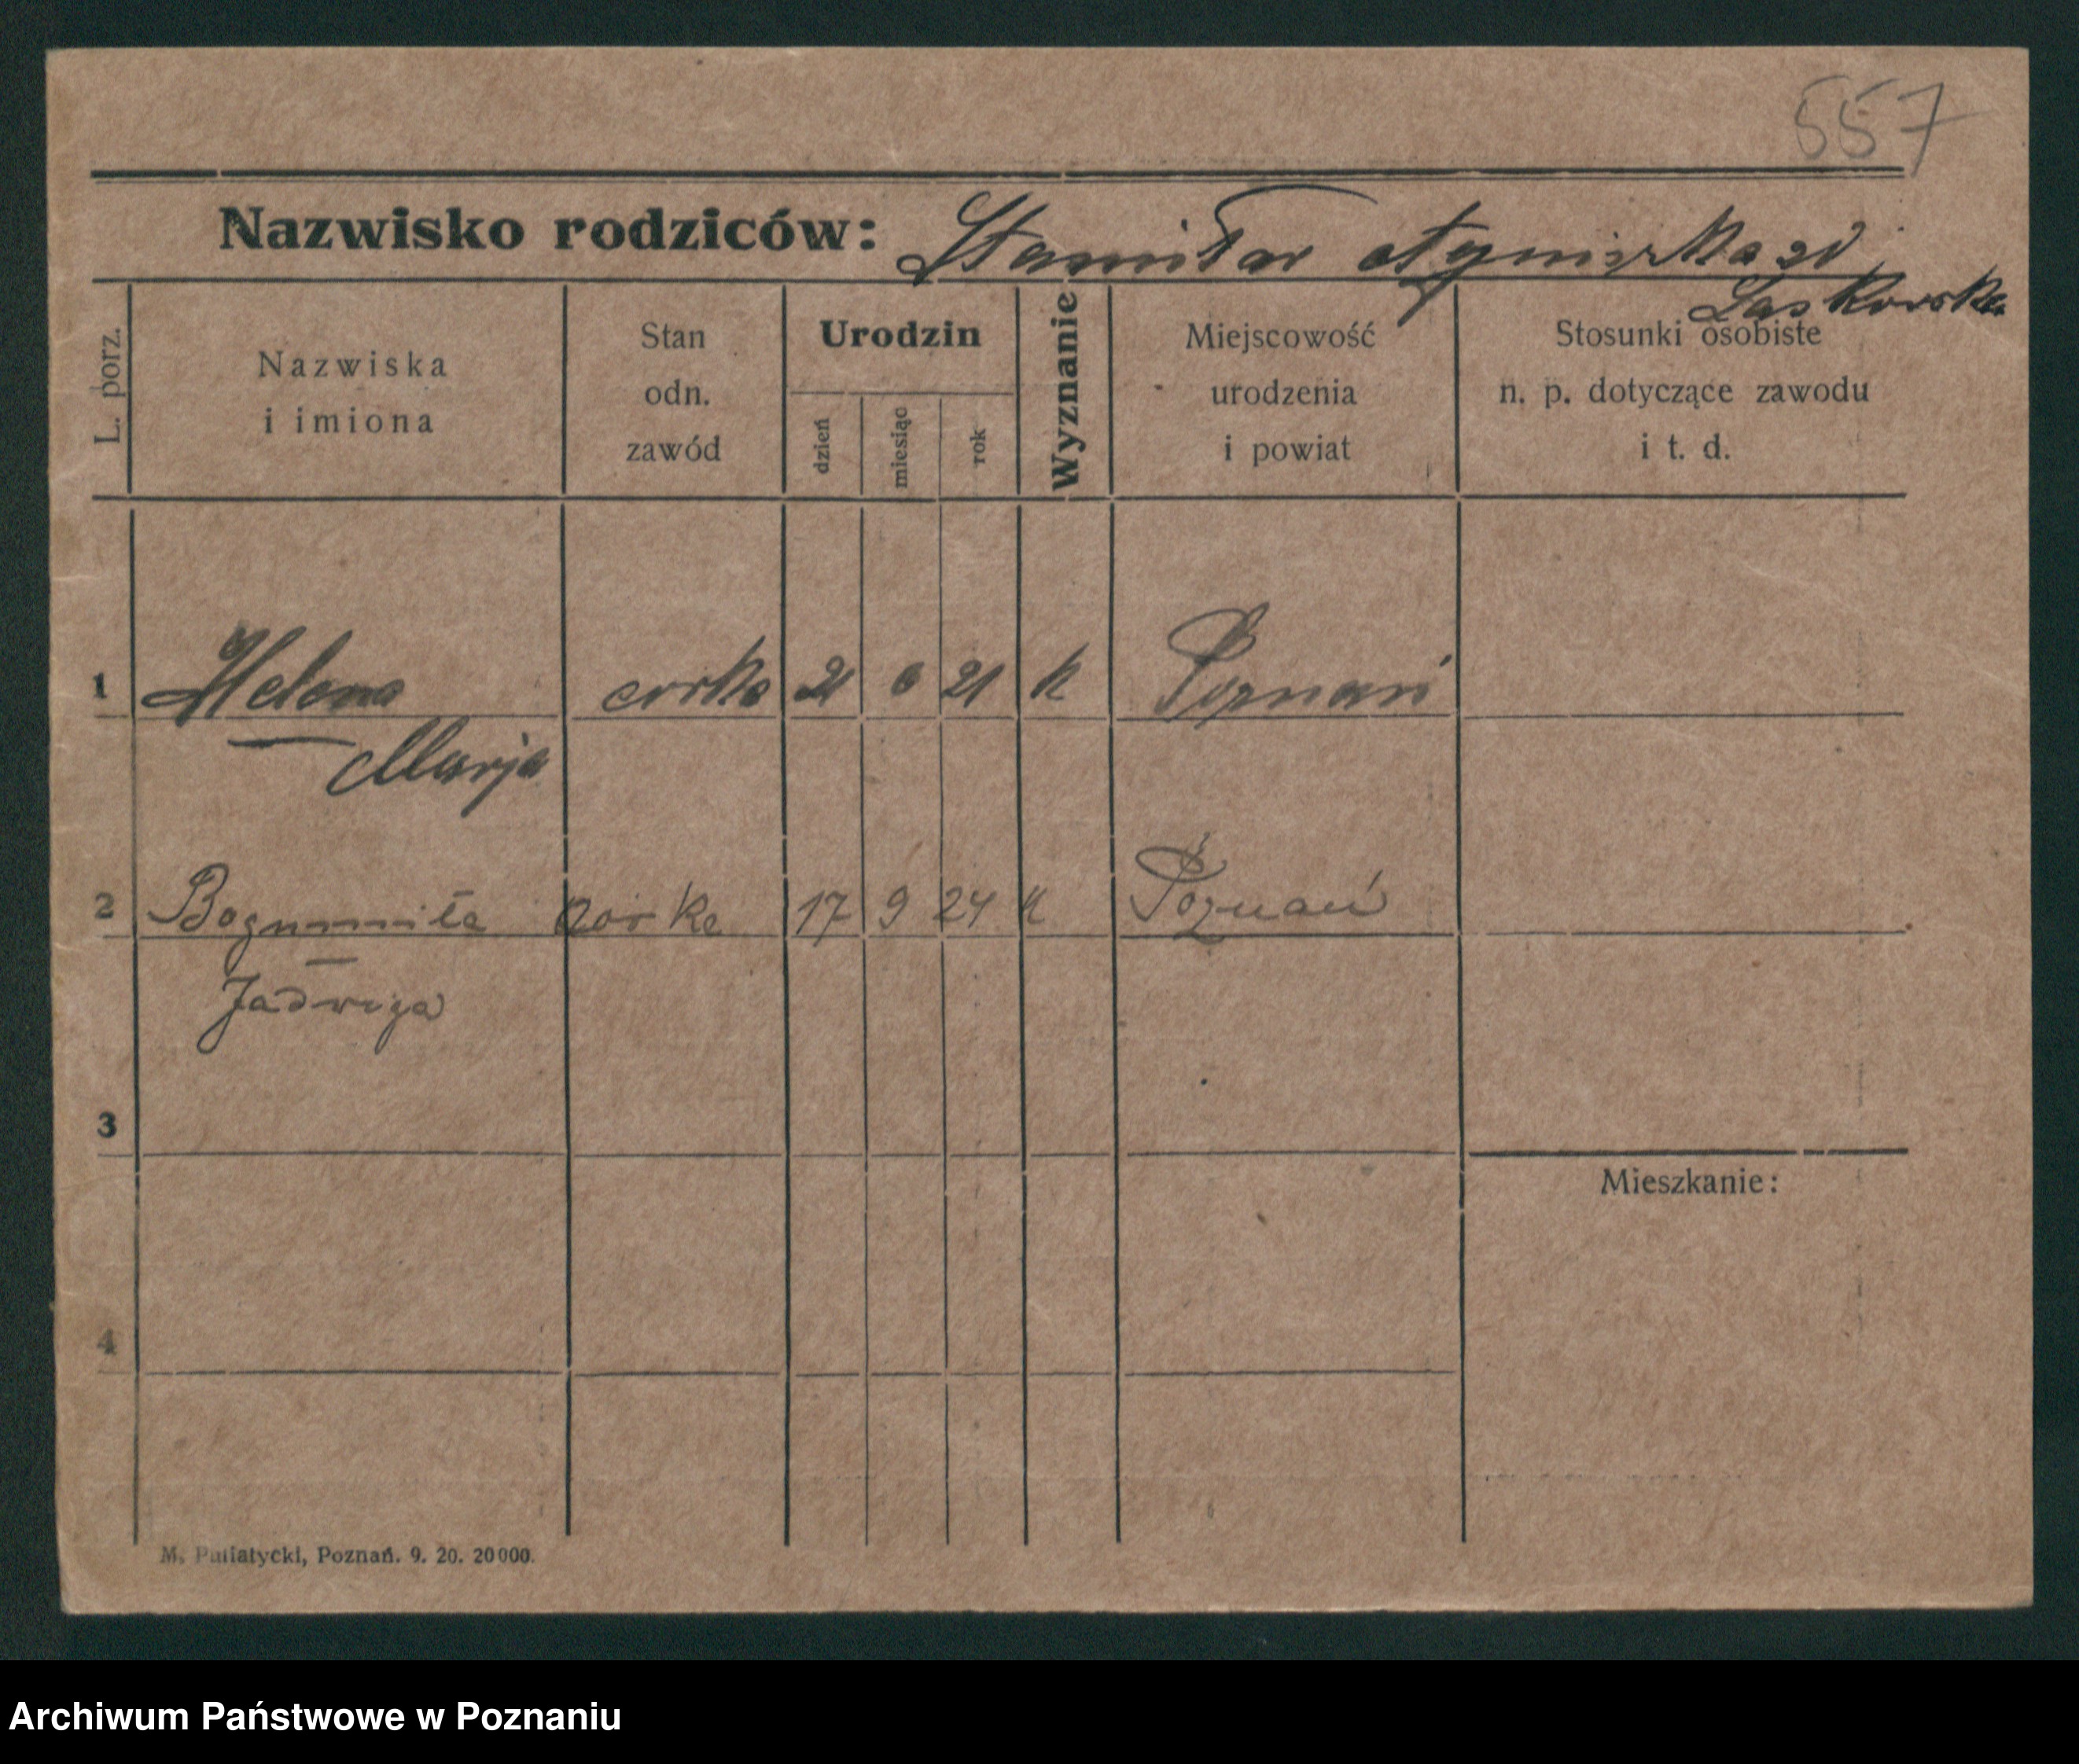 557
Nazwisko rodziców: Stanisław Agnieszka zd
Laskowska
L. porz.
Nazwiska
i imiona
Stan
odn.
zawód
Urodzin
dzień
miesiąc
rok
Wyznanie
Miejscowość
urodzenia
i powiat
Stosunki osobiste
n. p. dotyczące zawodu
i t. d.
1 Helena corka 21 21 k Poznań
Marja
2 Bogumiła córka 17 9 24 k Poznań
Jadwiga
3
Mieszkanie:
4
M. Putiatycki, Poznań. 9. 20. 20000.
Archiwum Państwowe w Poznaniu